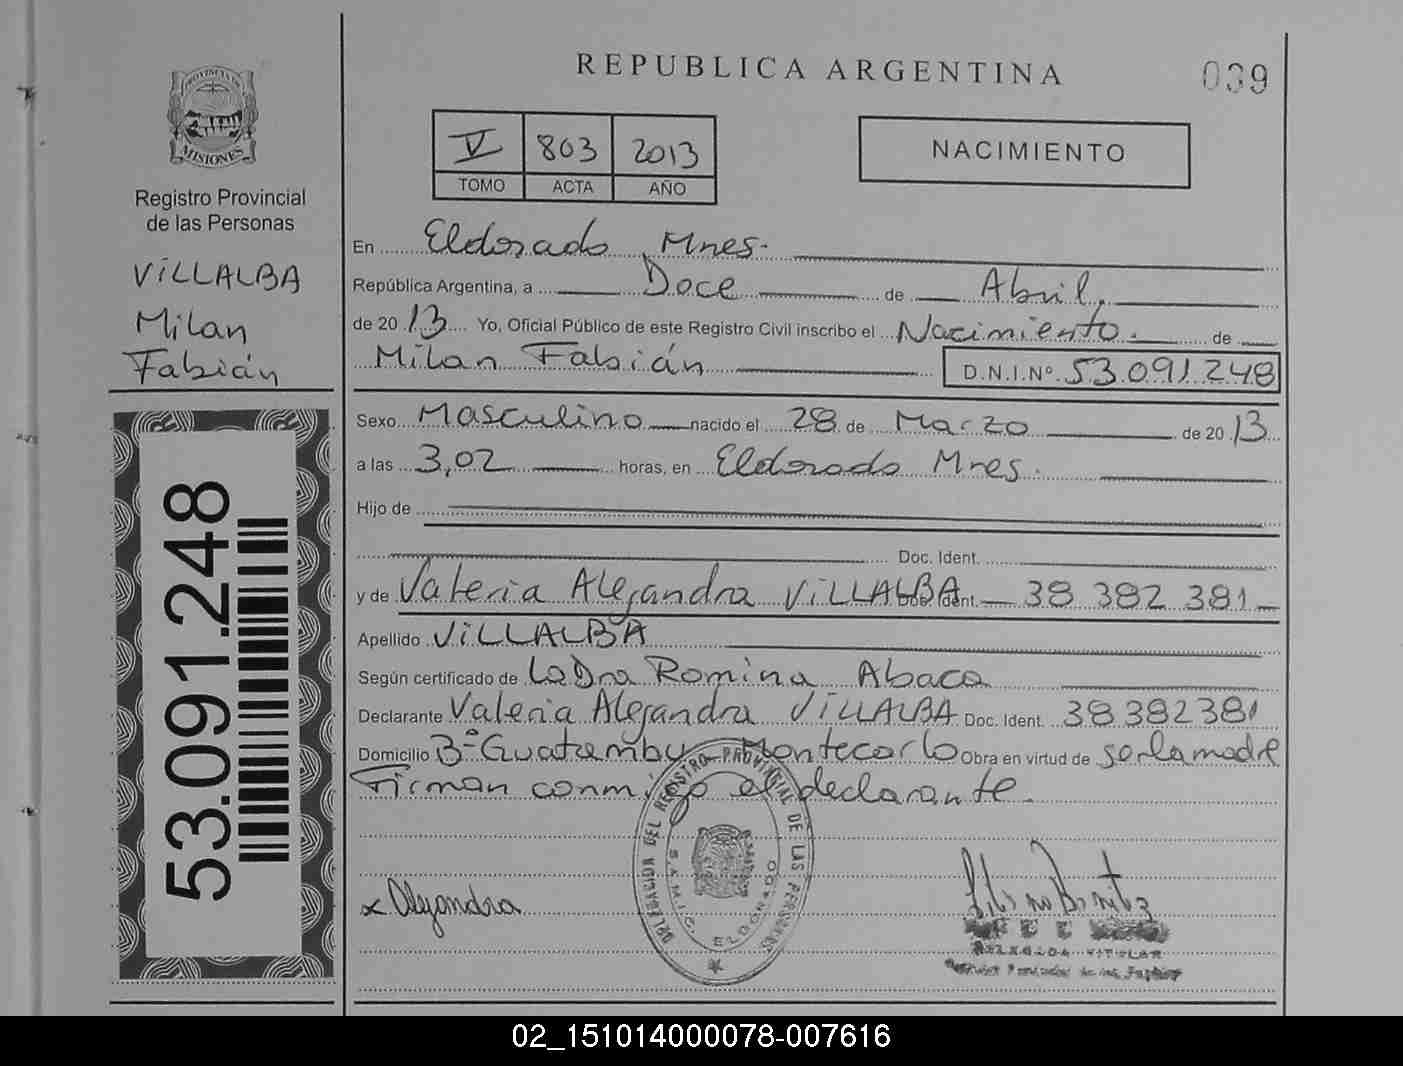 REPUBLICA ARGENTINA
039
PROVINCIA DE
MISIONES
Registro Provincial
de las Personas
VILLALBA
Milan
Fabián
53.091.248
V 803 2013
TOMO ACTA AÑO
NACIMIENTO
En Eldorado, Mnes.
República Argentina, a Doce de Abril,
de 2013 Yo, Oficial Público de este Registro Civil inscribo el Nacimiento. de
Milan Fabián D.N.I.Nº 53.091.248
Sexo Masculino nacido el 28 de Marzo de 2013
a las 3,02 horas, en Eldorado Mnes.
Hijo de
Doc. Ident.
y de Valeria Alejandra VILLALBA Doc. Ident. 38 382 381
Apellido VILLALBA
Según certificado de La Dra Romina Abaca
Declarante Valeria Alejandra VILLALBA Doc. Ident. 38382381
Domicilio Bº Guatambu Montecarlo Obra en virtud de ser la madre
Firman conmigo el declarante.
DELEGACION DEL REGISTRO PROVINCIAL DE LAS PERSONAS
S.A.M.I.C. ELDORADO
x Alejandra
TITULAR
02_151014000078-007616